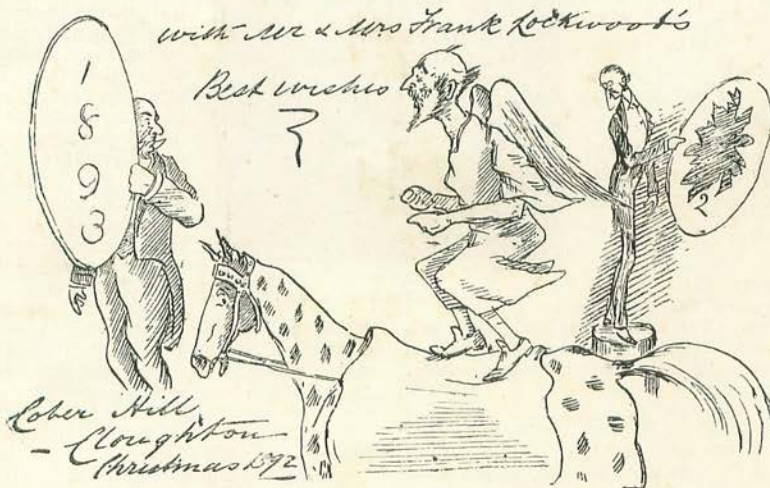 with Mr & Mrs Frank Lockwood's
Best wishes
1
8
9
3
2
Cober Hill
- Cloughton
Christmas 1892